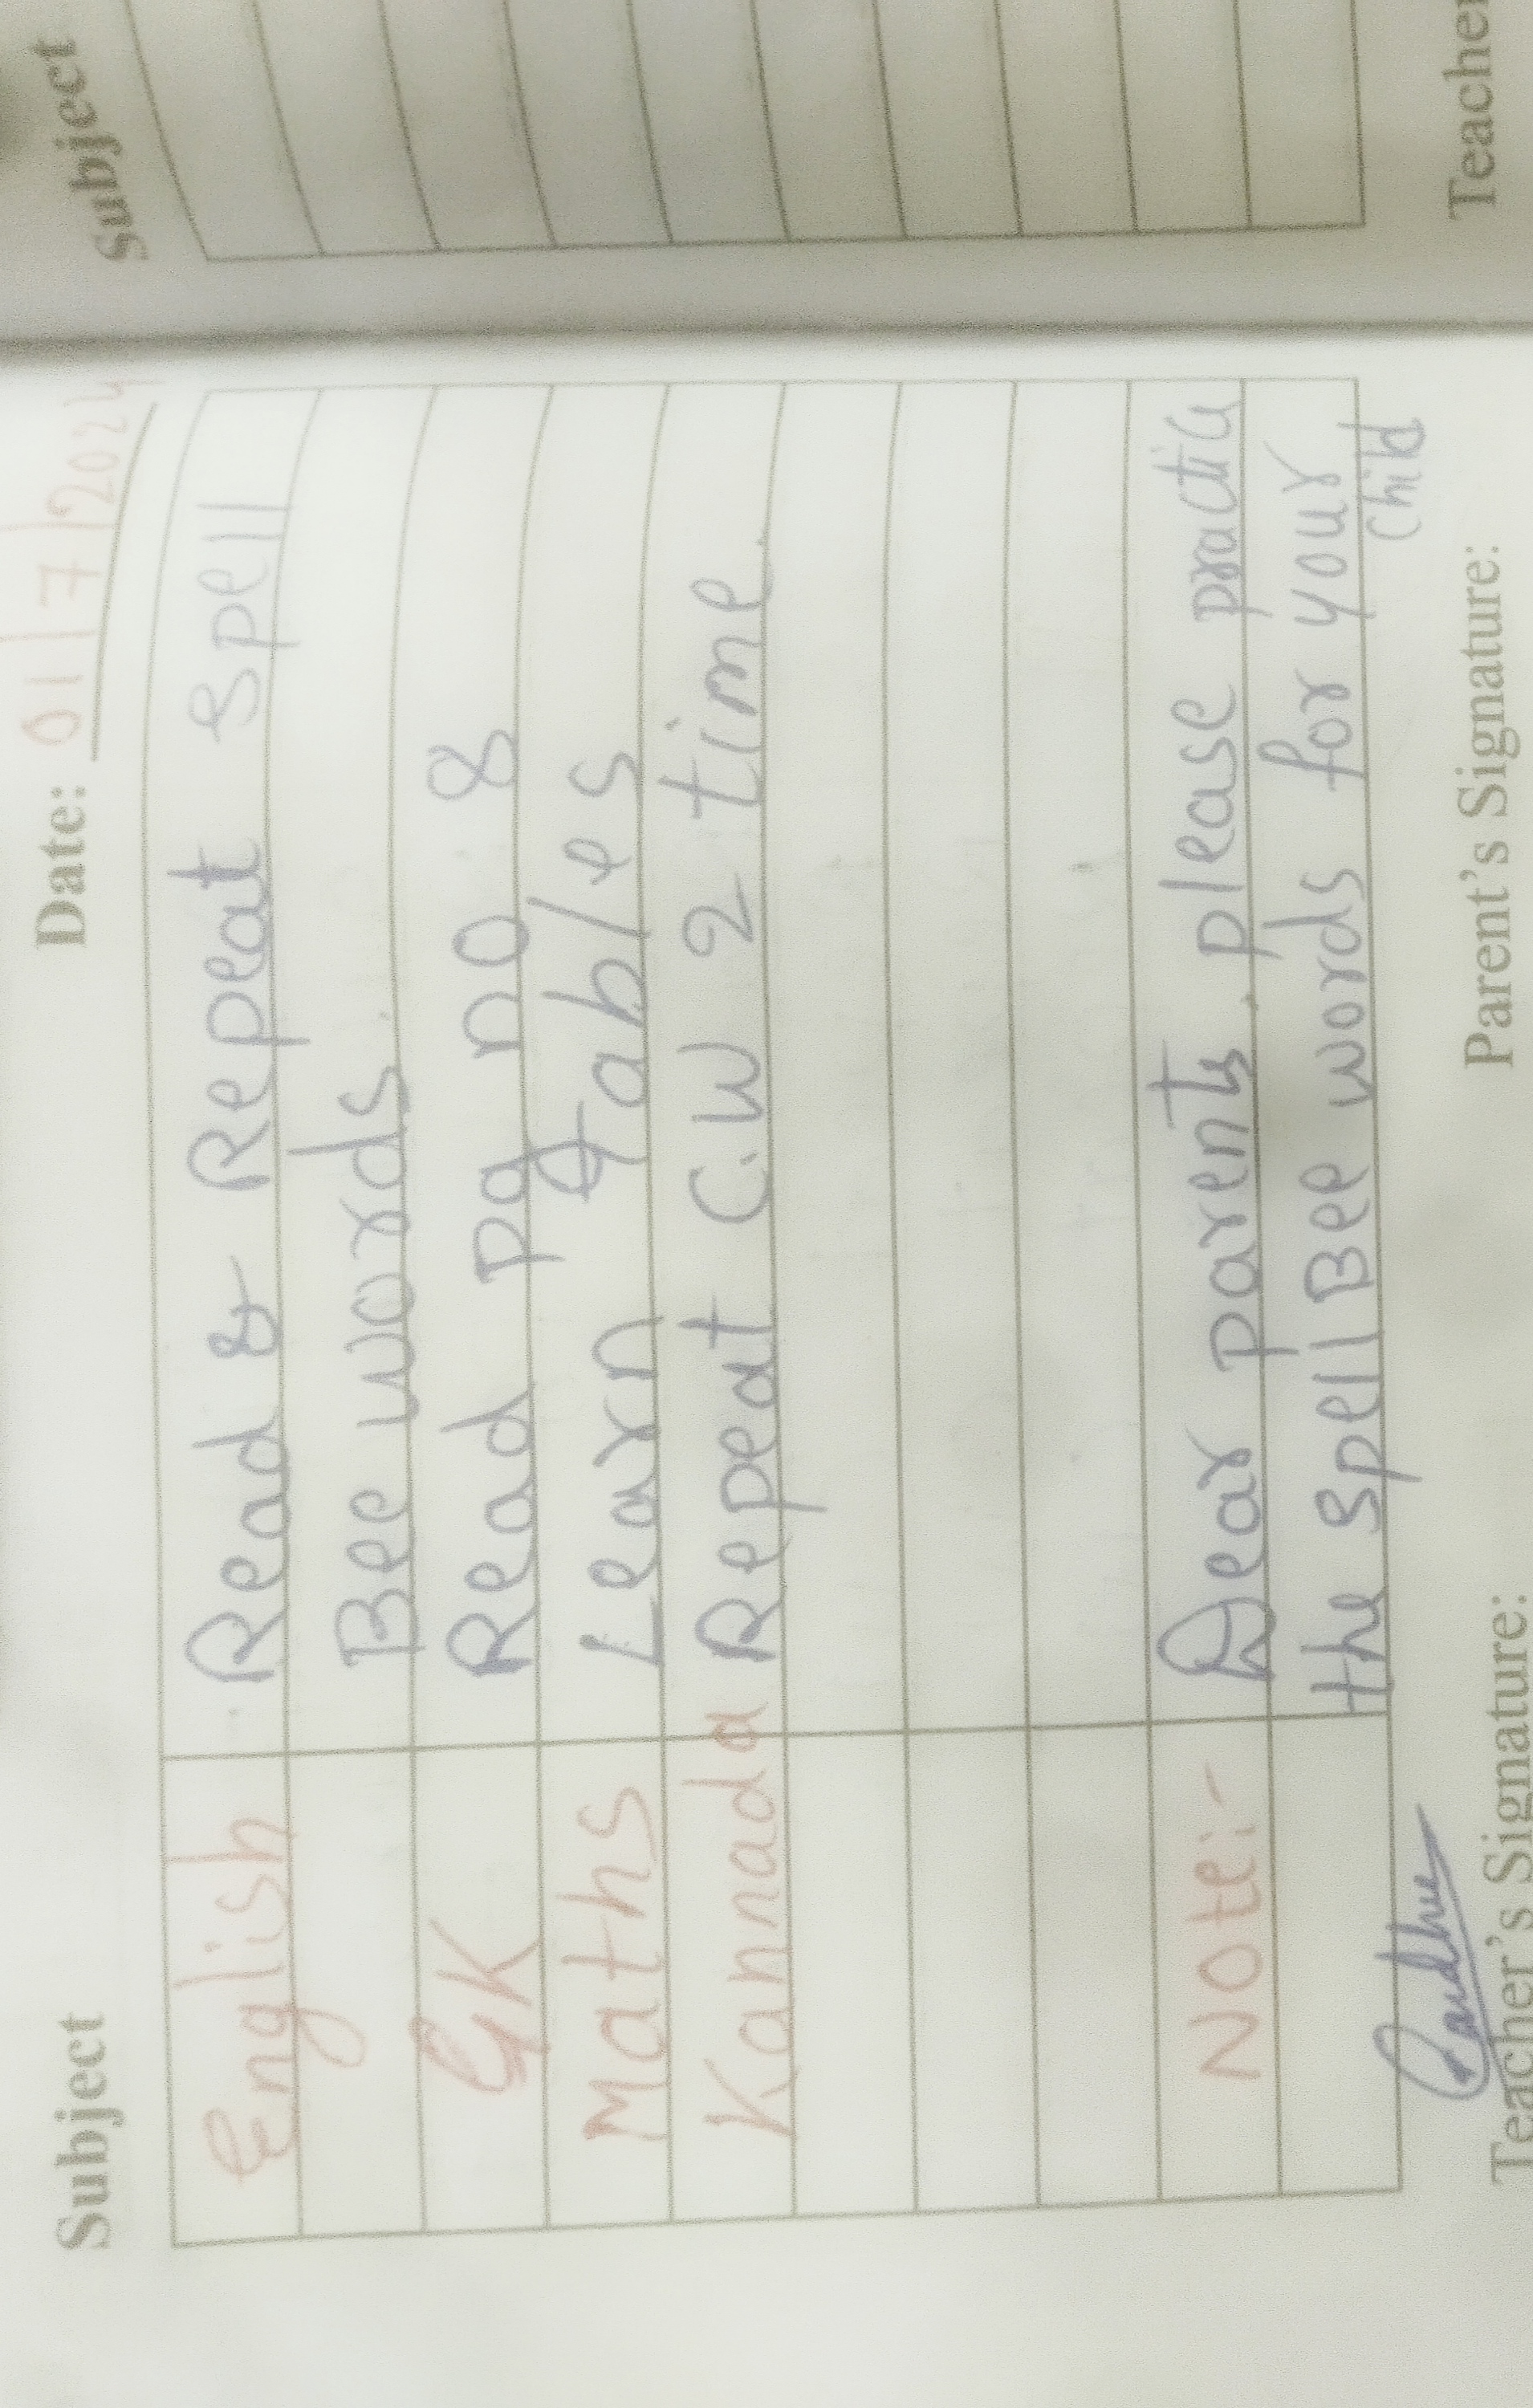 Subject Date: 01/7/2024
English Read & Repeat Spell
Bee words.
GK Read pg no 8
Maths Learn tables
Kannada Repeat C.W 2 time.
Note:- Dear parents, please practice
the Spell Bee words for your
child
Teacher's Signature: Parent's Signature:
Subject
Teacher